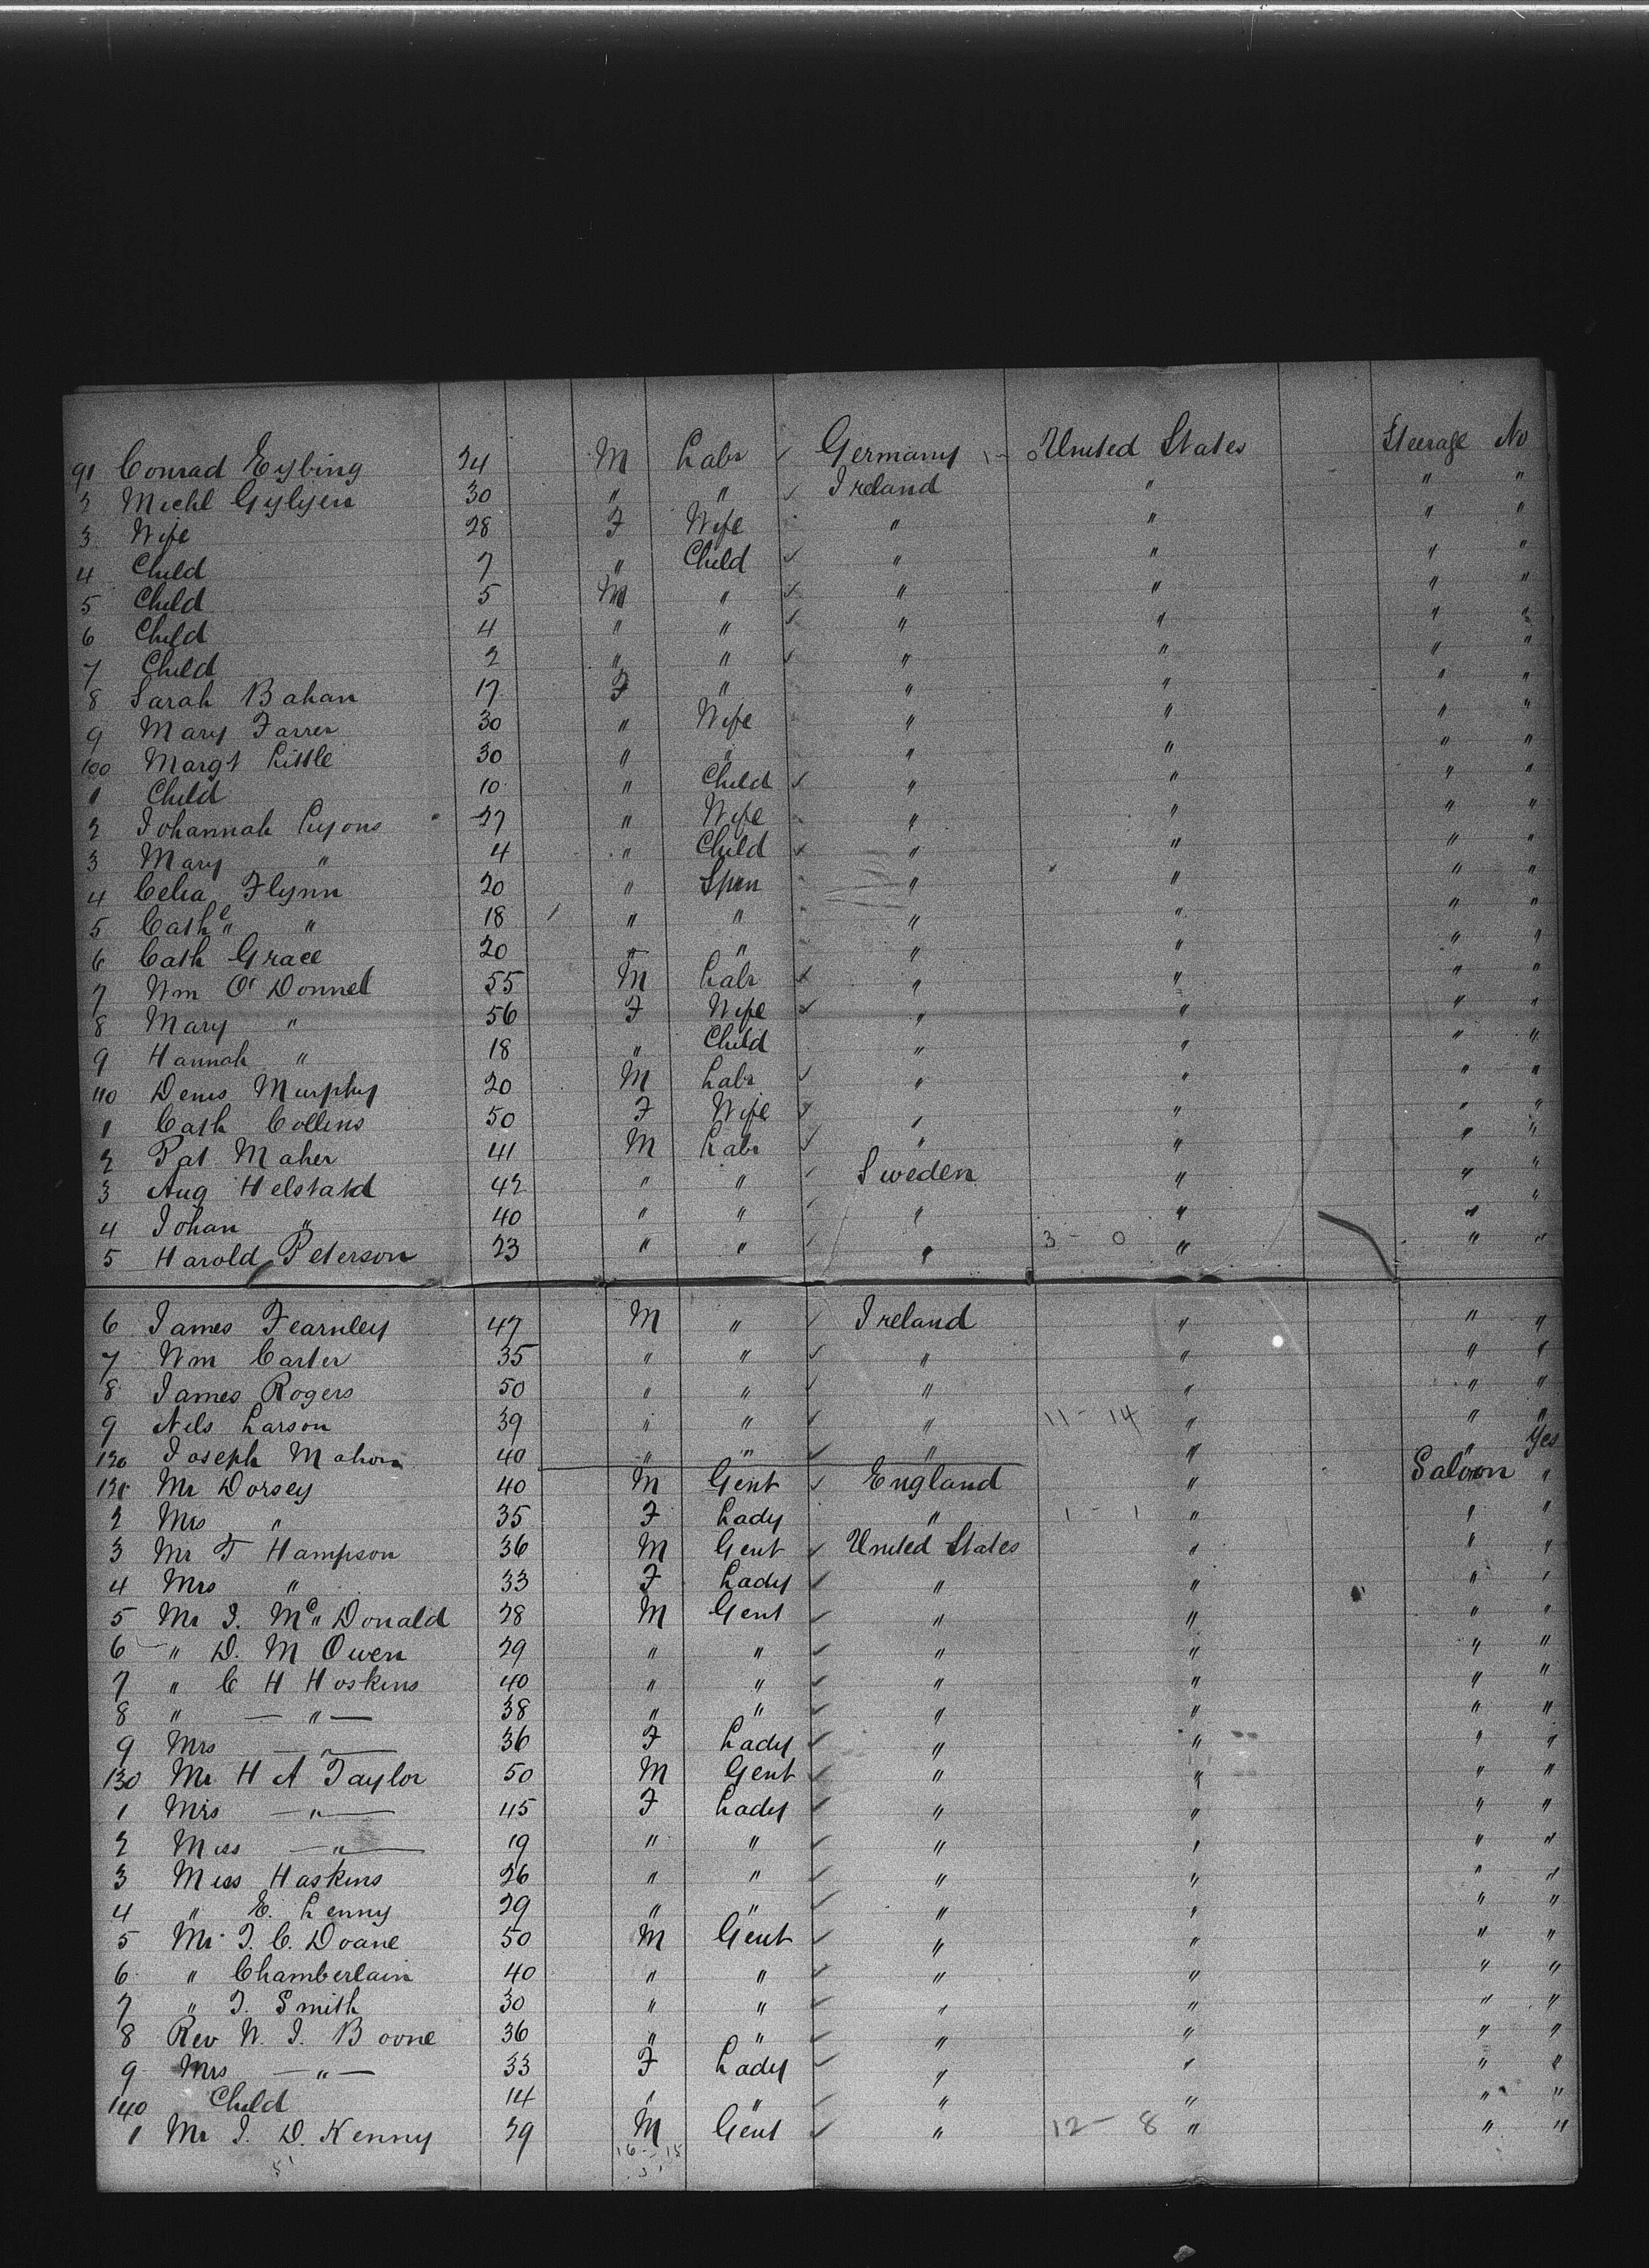 91 Conrad Eybing 24 M Labr Germany United States Steerage No
2 Michl Gylyen 30 " " Ireland " " "
3 Wife 28 F Wife " " " "
4 Child 7 " Child " " " "
5 Child 5 M " " " " "
6 Child 4 " " " " " "
7 Child 2 " " " " " "
8 Sarah Bahan 17 F " " " " "
9 Mary Farrer 30 " Wife " " " "
100 Margt Little 30 " " " " " "
1 Child 10 " Child " " " "
2 Johannah Lyons 27 " Wife " " " "
3 Mary " 4 " Child " " " "
4 Celia Flynn 20 " Spin " " " "
5 Cathe " " 18 " " " " " "
6 Cath Grace 20 " " " " " "
7 Wm O'Donnel 55 M Labr " " " "
8 Mary " 56 F Wife " " " "
9 Hannah " 18 " Child " " " "
110 Denis Murphy 20 M Labr " " " "
1 Cath Collins 50 F Wife " " " "
2 Pat Maher 41 M Labr " " " "
3 Aug Helstald 42 " " Sweden " " "
4 Johan " 40 " " " " " "
5 Harold Peterson 23 " " " 3 - 0 " " "
6 James Fearnley 47 M " Ireland " " "
7 Wm Carter 35 " " " " " "
8 James Rogers 50 " " " " " "
9 Nels Larson 39 " " " 11 - 14 " " "
120 Joseph Mahon 40 " " " " " Yes
121 Mr Dorsey 40 M Gent England " Saloon "
2 Mrs " 35 F Lady " 1 - 1 " " "
3 Mr T Hampson 36 M Gent United States " " "
4 Mrs " 33 F Lady " " " "
5 Mr J. Mc"Donald 28 M Gent " " " "
6 " D. M Owen 29 " " " " " "
7 " C H Hoskins 40 " " " " " "
8 " — " — 38 " " " " " "
9 Mrs — " — 36 F Lady " " " "
130 Mr H A Taylor 50 M Gent " " " "
1 Mrs — " — 45 F Lady " " " "
2 Miss — " — 19 " " " " " "
3 Miss Haskins 26 " " " " " "
4 " E. Lenny 29 " " " " " "
5 Mr J. C. Doane 50 M Gent " " " "
6 " Chamberlain 40 " " " " " "
7 " J. Smith 30 " " " " " "
8 Rev W. J. Boone 36 " " " " " "
9 Mrs — " — 33 F Lady " " " "
140 Child 14 " " " " " "
1 Mr J. D. Kenny 29 M Gent " 12 - 8 " " "
16 - 15